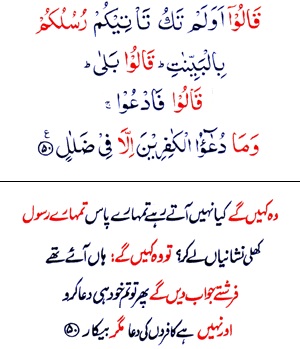 قَالُوْٓا اَوَلَمْ تَكُ تَاْتِيْكُمْ رُسُلُكُمْ
بِالْبَيِّنٰتِ ؕ قَالُوْا بَلٰى ؕ
قَالُوْا فَادْعُوْا ۚ
وَمَا دُعٰٓؤُا الْكٰفِرِيْنَ اِلَّا فِىْ ضَلٰلٍ ﴿۵۰﴾ ع
وہ کہیں گے کیا نہیں آتے رہے تمہارے پاس تمہارے رسول
کھلی نشانیاں لے کر؟ تو وہ کہیں گے: ہاں آئے تھے
فرشتے جواب دیں گے پھر تو تم خود ہی دعا کرو
اور نہیں ہے کافروں کی دعا مگر بیکار ﴿۵۰﴾